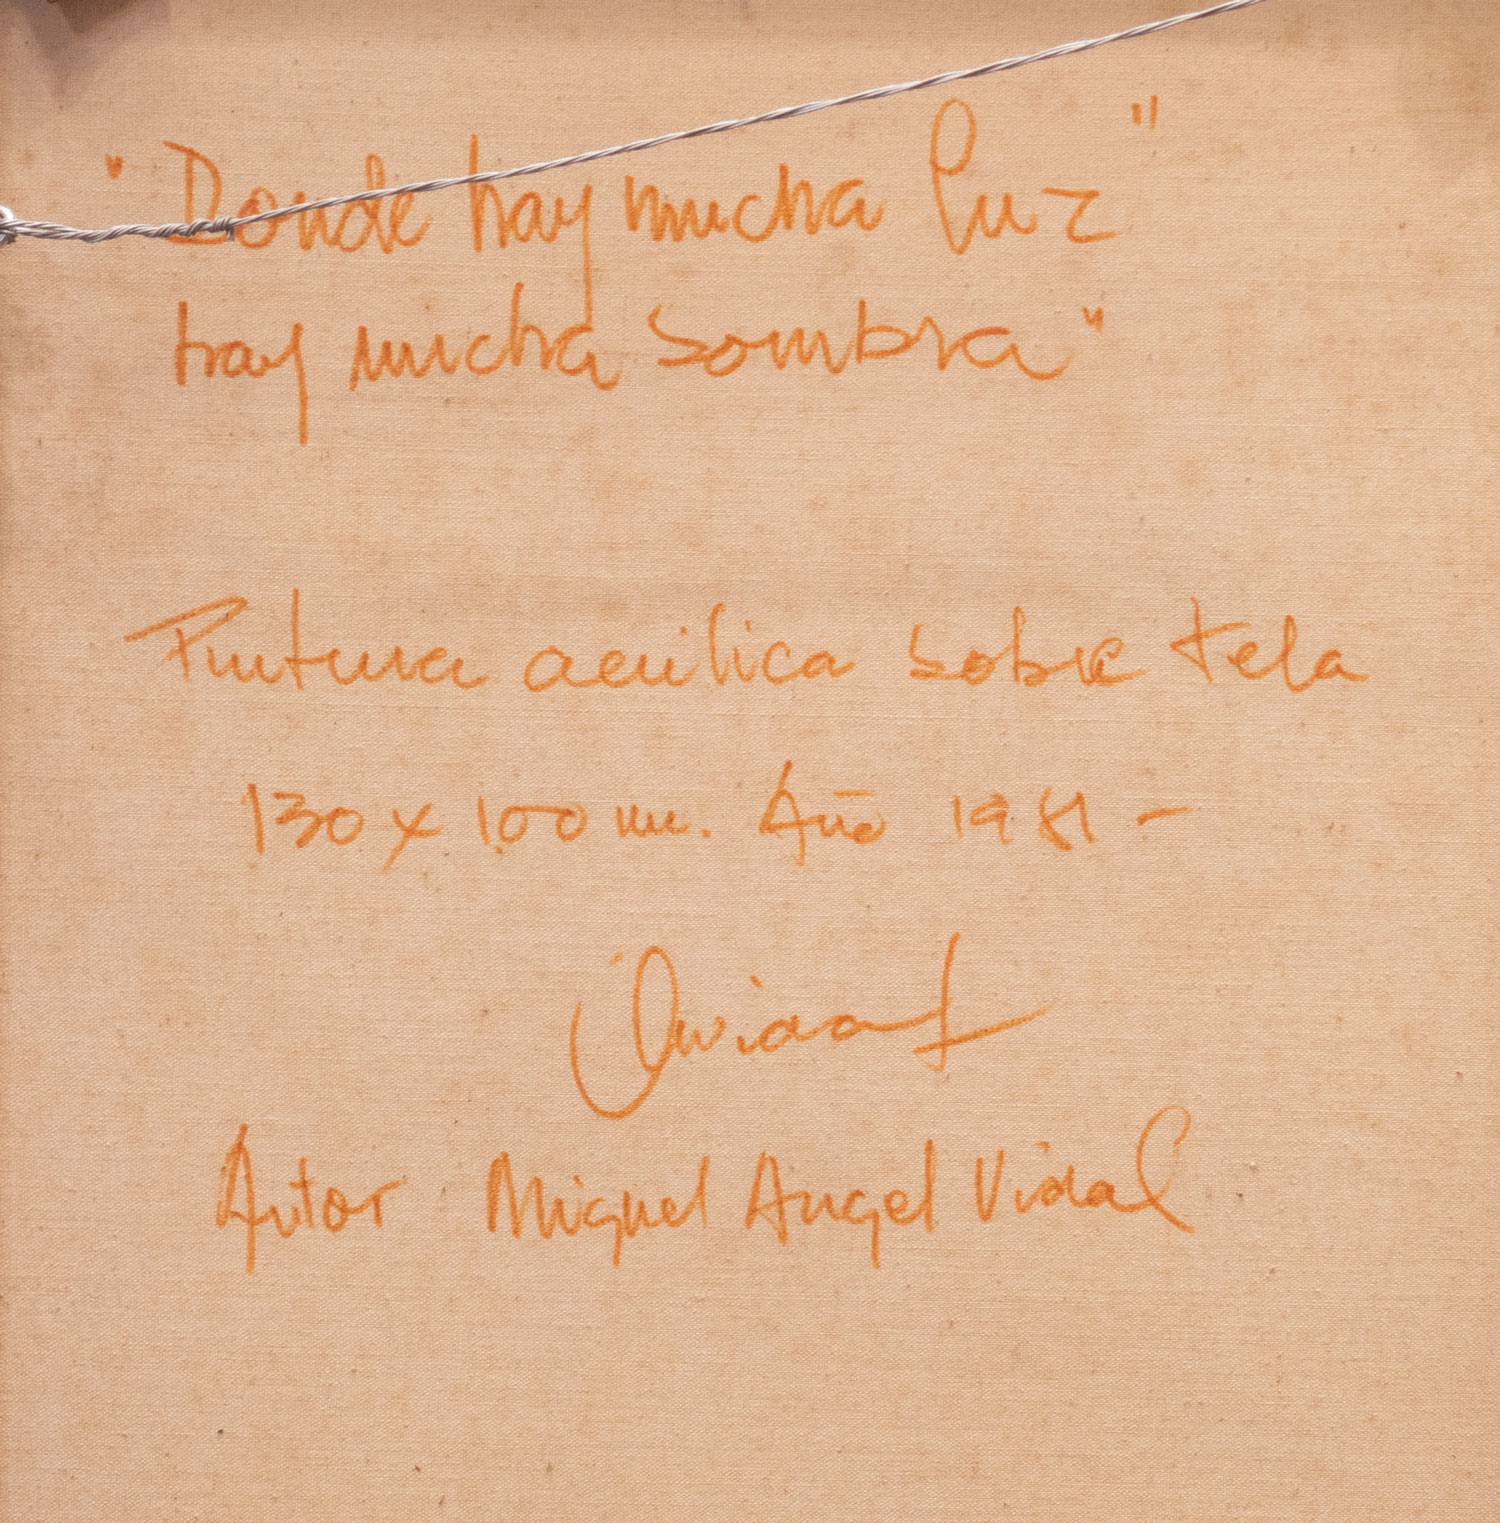 "Donde hay mucha luz"
hay mucha sombra"
Pintura acrilica sobre tela
130 x 100 cm. Año 1981 -
Vidal
Autor Miguel Angel Vidal